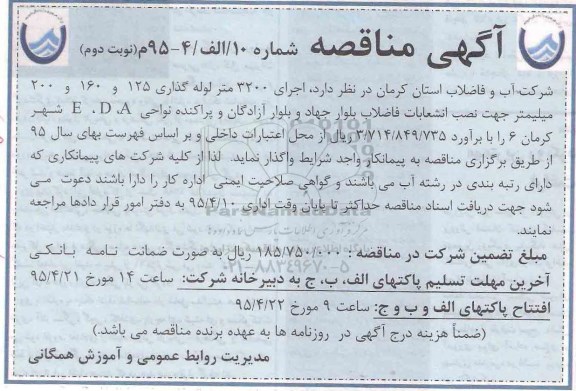 آگهی مناقصه شماره ۱۰/الف/۴-۹۵م(نوبت دوم)
شرکت آب و فاضلاب استان کرمان در نظر دارد، اجرای ۳۲۰۰ متر لوله گذاری ۱۲۵ و ۱۶۰ و ۲۰۰
میلیمتر جهت نصب انشعابات فاضلاب بلوار جهاد و بلوار آزادگان و پراکنده نواحی E .D.A شهر
کرمان ۶ را با برآورد ۳/۷۱۴/۸۴۹/۷۳۵ ریال از محل اعتبارات داخلی و بر اساس فهرست بهای سال ۹۵
از طریق برگزاری مناقصه به پیمانکار واجد شرایط واگذار نماید. لذا از کلیه شرکت های پیمانکاری که
دارای رتبه بندی در رشته آب می باشند و گواهی صلاحیت ایمنی اداره کار را دارا باشند دعوت می
شود جهت دریافت اسناد مناقصه حداکثر تا پایان وقت اداری ۹۵/۴/۱۰ به دفتر امور قرار دادها مراجعه
نمایند.
مبلغ تضمین شرکت در مناقصه : ۱۸۵/۷۵۰/۰۰۰ ریال به صورت ضمانت نامه بانکی
آخرین مهلت تسلیم پاکتهای الف، ب، ج به دبیرخانه شرکت: ساعت ۱۴ مورخ ۹۵/۴/۲۱
افتتاح پاکتهای الف و ب و ج: ساعت ۹ مورخ ۹۵/۴/۲۲
(ضمناً هزینه درج آگهی در روزنامه ها به عهده برنده مناقصه می باشد.)
مدیریت روابط عمومی و آموزش همگانی
ParsNamadData
۰۲۱-۸۸۳۴۹۶۷۰-۵